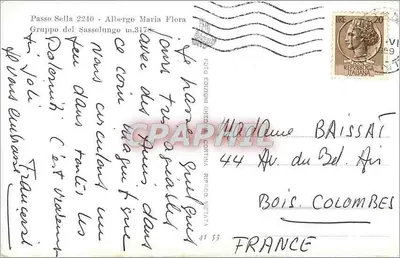 Passo Sella 2240 - Albergo Maria Flora
Gruppo del Sassolungo m. 3178
Je passe quelques
jours très agréables
avec des amis dans
ce coin magnifique
nous circulons un
peu dans toutes les
Dolomiti. C'est vraiment
très joli.
Je vous embrasse
Francesca
CPAPHIL
FOTO EDIZIONI GHEDINA CORTINA RIPROD. VIETATA
4155
LIRE 20
ITALIANA
Madame BAISSAT
44 Av. du Bel Air
BOIS. COLOMBES
FRANCE